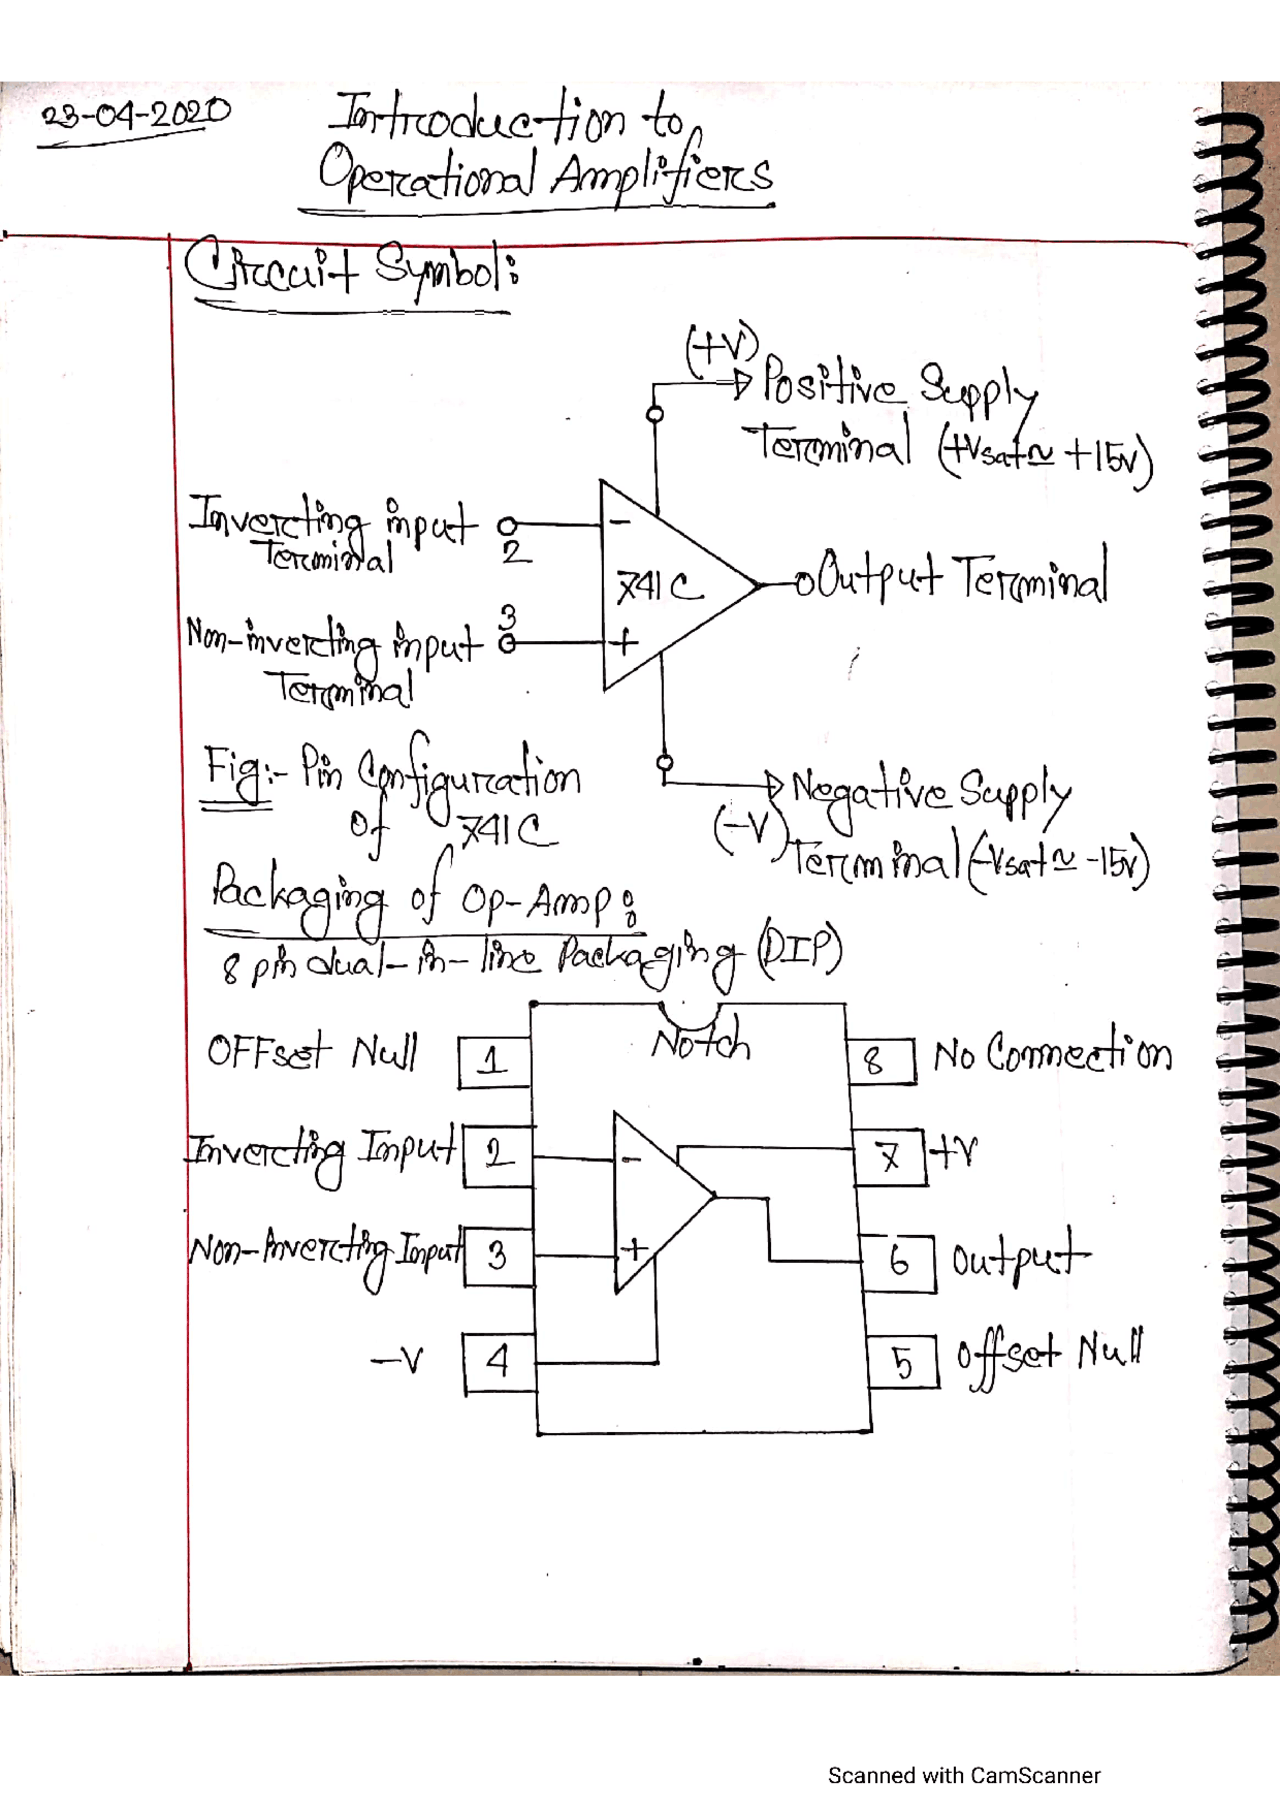 23-04-2020
Introduction to
Operational Amplifiers
Circuit Symbol:
(+V)
Positive Supply
Terminal (+Vsat≃ +15v)
Inverting input
Terminal
2
-
741C
Output Terminal
3
Non-inverting input
Terminal
+
Fig:- Pin Configuration
of 741C
Negative Supply
(-V)
Terminal (-Vsat≃ -15v)
Packaging of Op-Amp:
8 pin dual-in-line Packaging (DIP)
Notch
OFFset Null 1
8 No Connection
Inverting Input 2
-
7 +V
Non-Inverting Input 3
+
6 Output
-V 4
5 Offset Null
Scanned with CamScanner